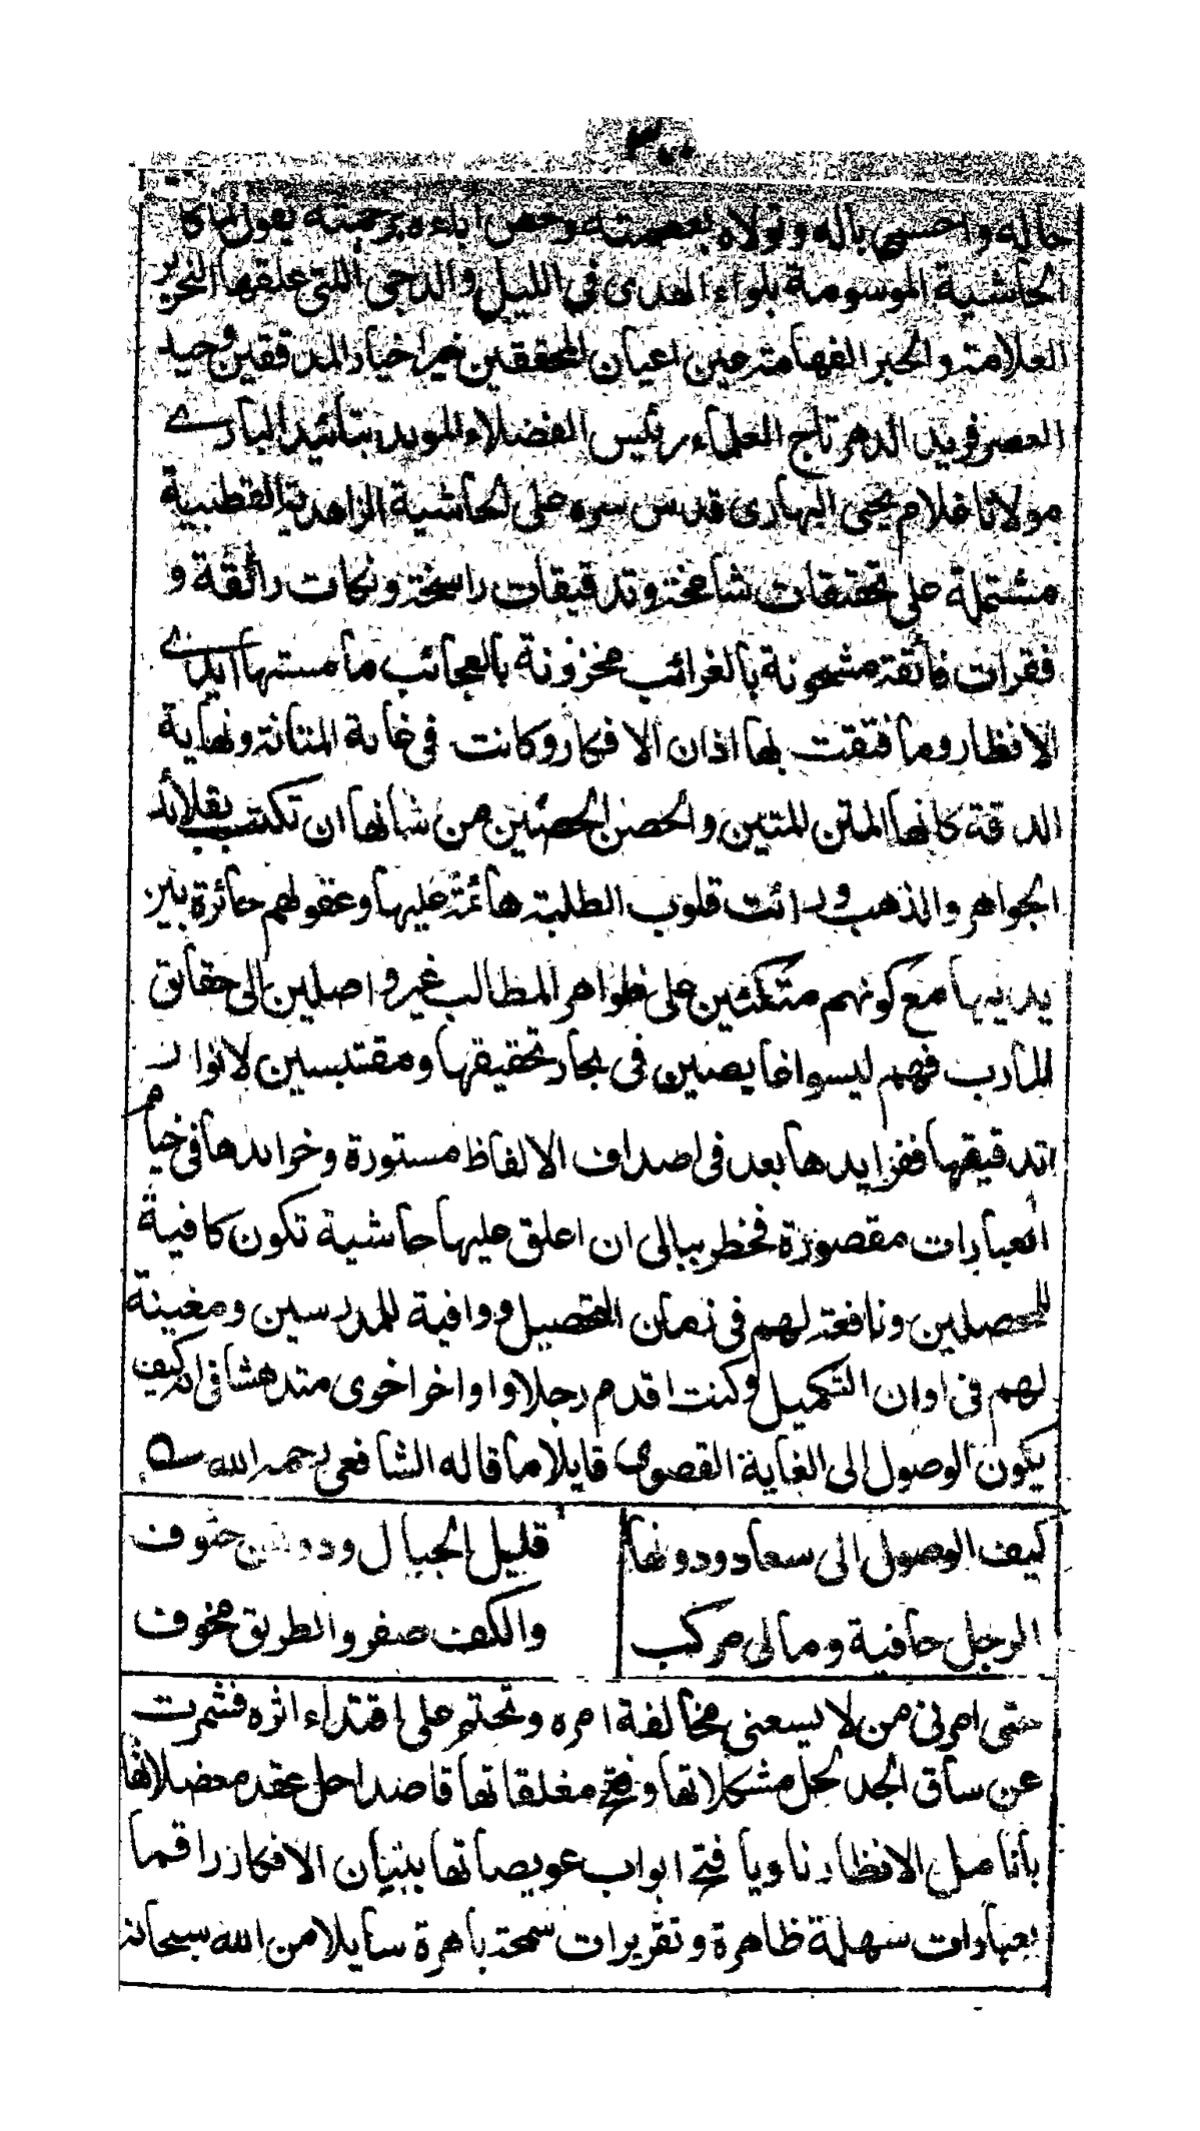 ٣٠٠
حاله واحسن باله وتولاه بعصمته وخص اباءه برحمته يقول لما كا
الحاشية الموسومة بلواء الهدى في الليل والدجى اللتي علقها النحرير
العلامة والحبر الفهامة عين اعيان المحققين خير اخيار المدققين وحيد
العصر فريد الدهر تاج العلماء رئيس الفضلاء المويد بتائيد البارے
مولانا غلام يحيى البهارى قدس سره على الحاشية الزاهدية القطبية
مشتملة على تحقيقات شامخة وتدقيقات راسخة ونكات رائقة و
فقرات فائقة مشحونة بالغرائب مخزونة بالعجائب ما مستها ايدے
الانظار وما فتقت بها اذان الافكار وكانت في غاية المتانة ونهاية
الدقة كانها المتن المتين والحصن الحصين من شانها ان تكتب بقلائد
الجواهر والذهب ورائت قلوب الطلبة هائمة عليها وعقولهم حائرة بين
يديها مع كونهم متكئين على ظواهر المطالب غير واصلين الى حقايق
المارب فهم ليسوا غايصين في بحار تحقيقها ومقتبسين لانوار
تدقيقها ففرايدها بعد في اصداف الالفاظ مستورة وخرايدها في خيام
العبارات مقصورة فخطر ببالى ان اعلق عليها حاشية تكون كافية
للمحصلين ونافعة لهم في زمان التحصيل ووافية للمدرسين ومغينة
لهم في اوان التكميل وكنت اقدم رجلا واواخر اخرى متدهشا في انه كيف
يكون الوصول الى الغاية القصوى قايلا ما قاله الشافعي رحمه الله
كيف الوصول الى سعاد ودونها قليل الجبال ودونهن حتوف
الرجل حافية ومالى مركب والكف صفر والطريق مخوف
حتى امرنى من لا يسعنى مخالفة امره وتحتم على اقتداء اثره فشمرت
عن ساق الجد لحل مشكلاتها وفتح مغلقاتها قاصدا حل عقد معضلاتها
بانامل الانظار ناويا فتح ابواب عويصاتها ببنيان الافكار راقما
بعبارات سهلة ظاهرة وتقريرات سمحة باهرة سايلا من الله سبحانه